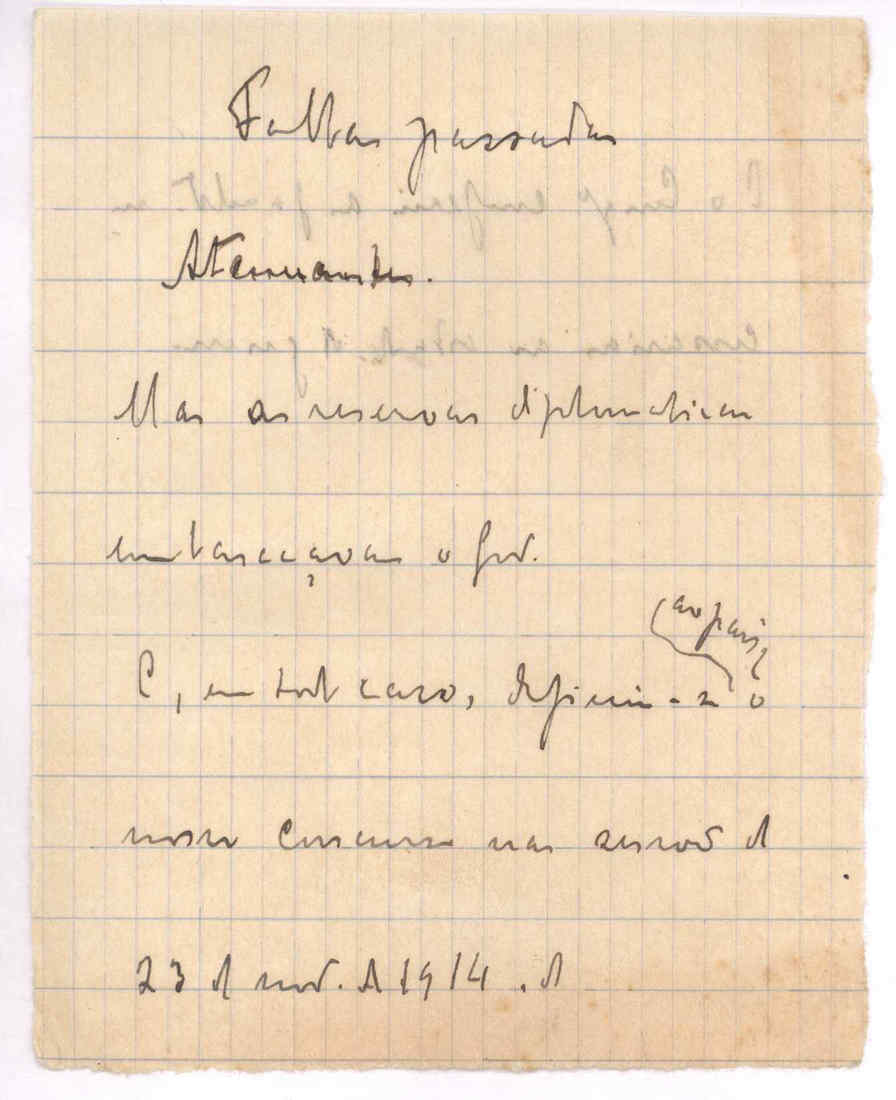 Faltas passadas
Atenuantes.
Mas as reservas diplomaticas
embaraçavam o Gov.
E, em todo caso, definiu-se o
ao pais
nosso concurso nas sessões d
23 d nov. d 1914. d